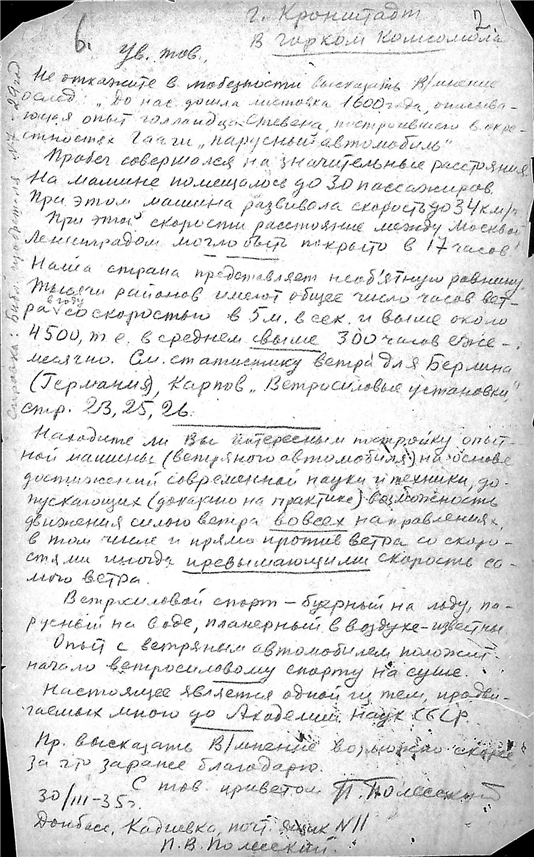 г. Кронштадт 2.
6. В горком Комсомола
Ув. тов.,
Не откажите в любезности высказать В/мнение
о след: „До нас дошла листовка 1600 года, описыва-
ющая опыт голландца Стевена, построившего в окре-
стностях Гааги „парусный автомобиль"
Пробег совершался на значительные расстояния.
На машине помещалось до 30 пассажиров
При этом машина развивала скорость до 34 км/ч.
При этой скорости расстояние между Москвой
Ленинградом могло быть покрыто в 17 часов"
Наша страна представляет необ'ятную равнину.
Тысячи районов имеют общее число часов вет-
ра в году со скоростью в 5 м. в сек. и выше около
4500, т.е. в среднем свыше 300 часов еже-
месячно. См. статистику ветра для Берлина
(Германия), Карпов „Ветросиловые установки"
стр. 23, 25, 26.
Находите ли Вы интересным постройку опыт-
ной машины (ветряного автомобиля) на основе
достижений современной науки и техники, до-
пускающих (доказано на практике) возможность
движения силою ветра во всех направлениях,
в том числе и прямо против ветра со скоро-
стями иногда превышающими скорость са-
мого ветра.
Ветросиловой спорт – буерный на льду, па-
русный на воде, планерный в воздухе – известны
Опыт с ветряным автомобилем положит
начало ветросиловому спорту на суше.
Настоящее является одной из тем, продви-
гаемых мною до Академии Наук СССР
Пр. высказать В/мнение возможно скорее
за что заранее благодарю.
С тов. приветом П. Полесский
30/III-35г.
Донбасс, Кадиевка, почт. ящик N11
П.В. Полесский.
Справка: